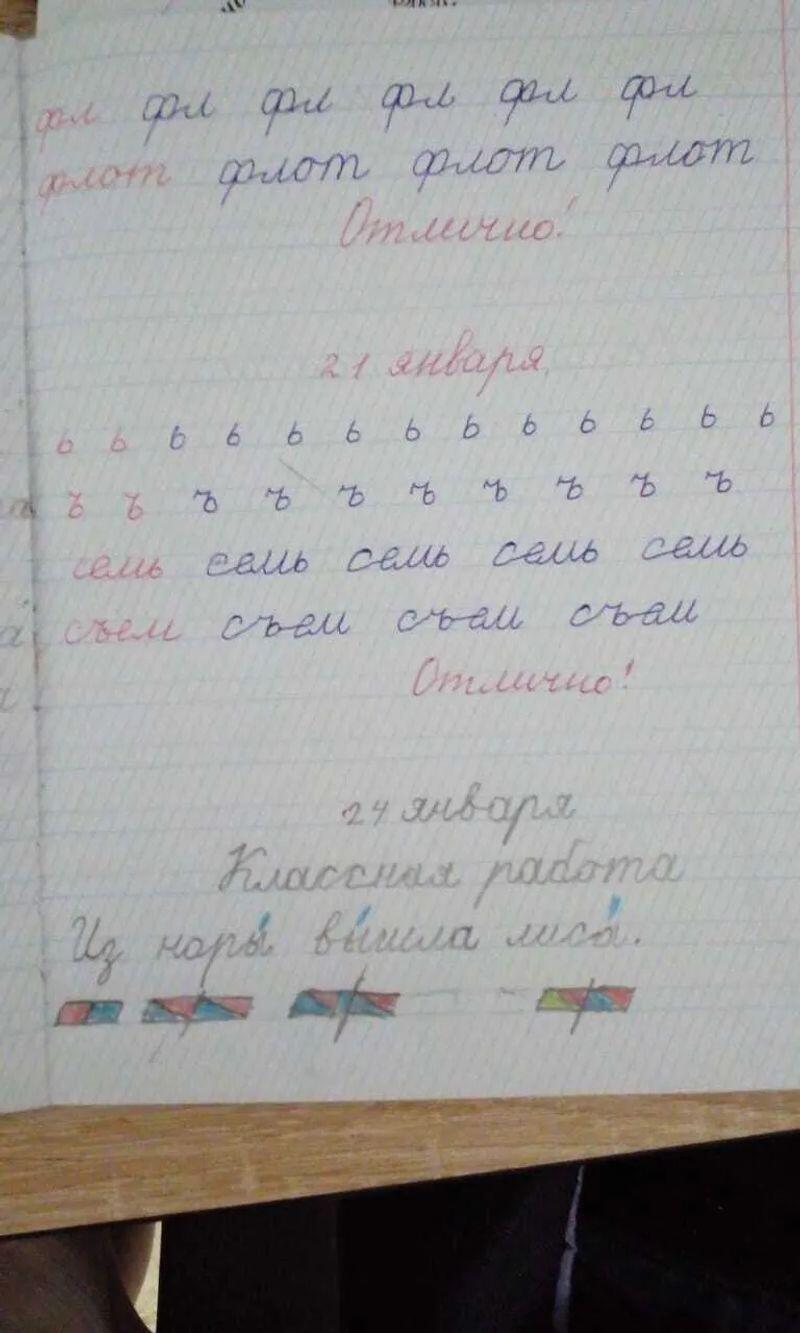 фл фл фл фл фл фл
флот флот флот флот
Отлично!
21 января.
ь ь ь ь ь ь ь ь ь ь ь ь ь
ъ ъ ъ ъ ъ ъ ъ ъ ъ ъ
семь семь семь семь семь
съем съем съем съем
Отлично!
24 января
Классная работа
Из норы́ вы́шла лиса́.